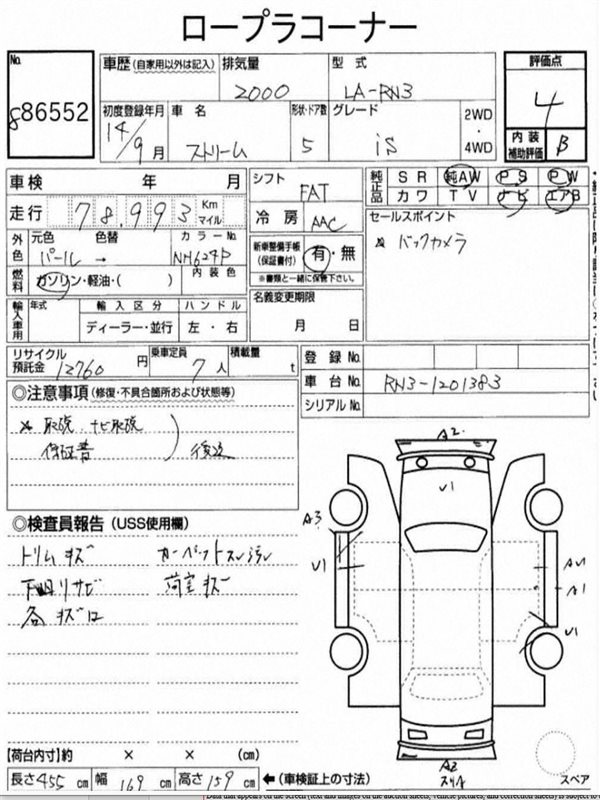 ロープラコーナー
No.
86552
車歴 (自家用以外は記入)
排気量
2000
型 式
LA-RN3
評価点
4
内装
補助評価
B
初度登録年月
14/9月
車 名
ストリーム
形状・ドア数
5
グレード
iS
2WD
・
4WD
車検 年 月
シフト
FAT
純正品
SR 純AW PS PW
カワ TV ナビ エアB
走行 78,993 Km マイル
冷房 AAC
セールスポイント
※ バックカメラ
外色
元色 色替 カラーNo.
パール → NH624P
新車整備手帳
(保証書付)
有・無
※書類と一緒に保管下さい。
燃料
ガソリン・軽油・( )
内装色
輸入車用
年式
輸入区分
ハンドル
ディーラー・並行
左・右
名義変更期限
月 日
リサイクル
預託金
12760円
乗車定員
7人
積載量
t
登録 No.
車台 No.
RN3-1201383
シリアル No.
◎注意事項 (修復・不具合箇所および状態等)
※ 取説 ナビ取説
保証書
後送
◎検査員報告 (USS使用欄)
トリムキズ カーペットスレ汚レ
下回リサビ 荷室キズ
各キズ凹
A2
U1
A3
U1
AU
A1
U1
A2
スリキ
【荷台内寸】約 × × (cm)
長さ 455 cm 幅 169 cm 高さ 159 cm
←(車検証上の寸法)
スペア